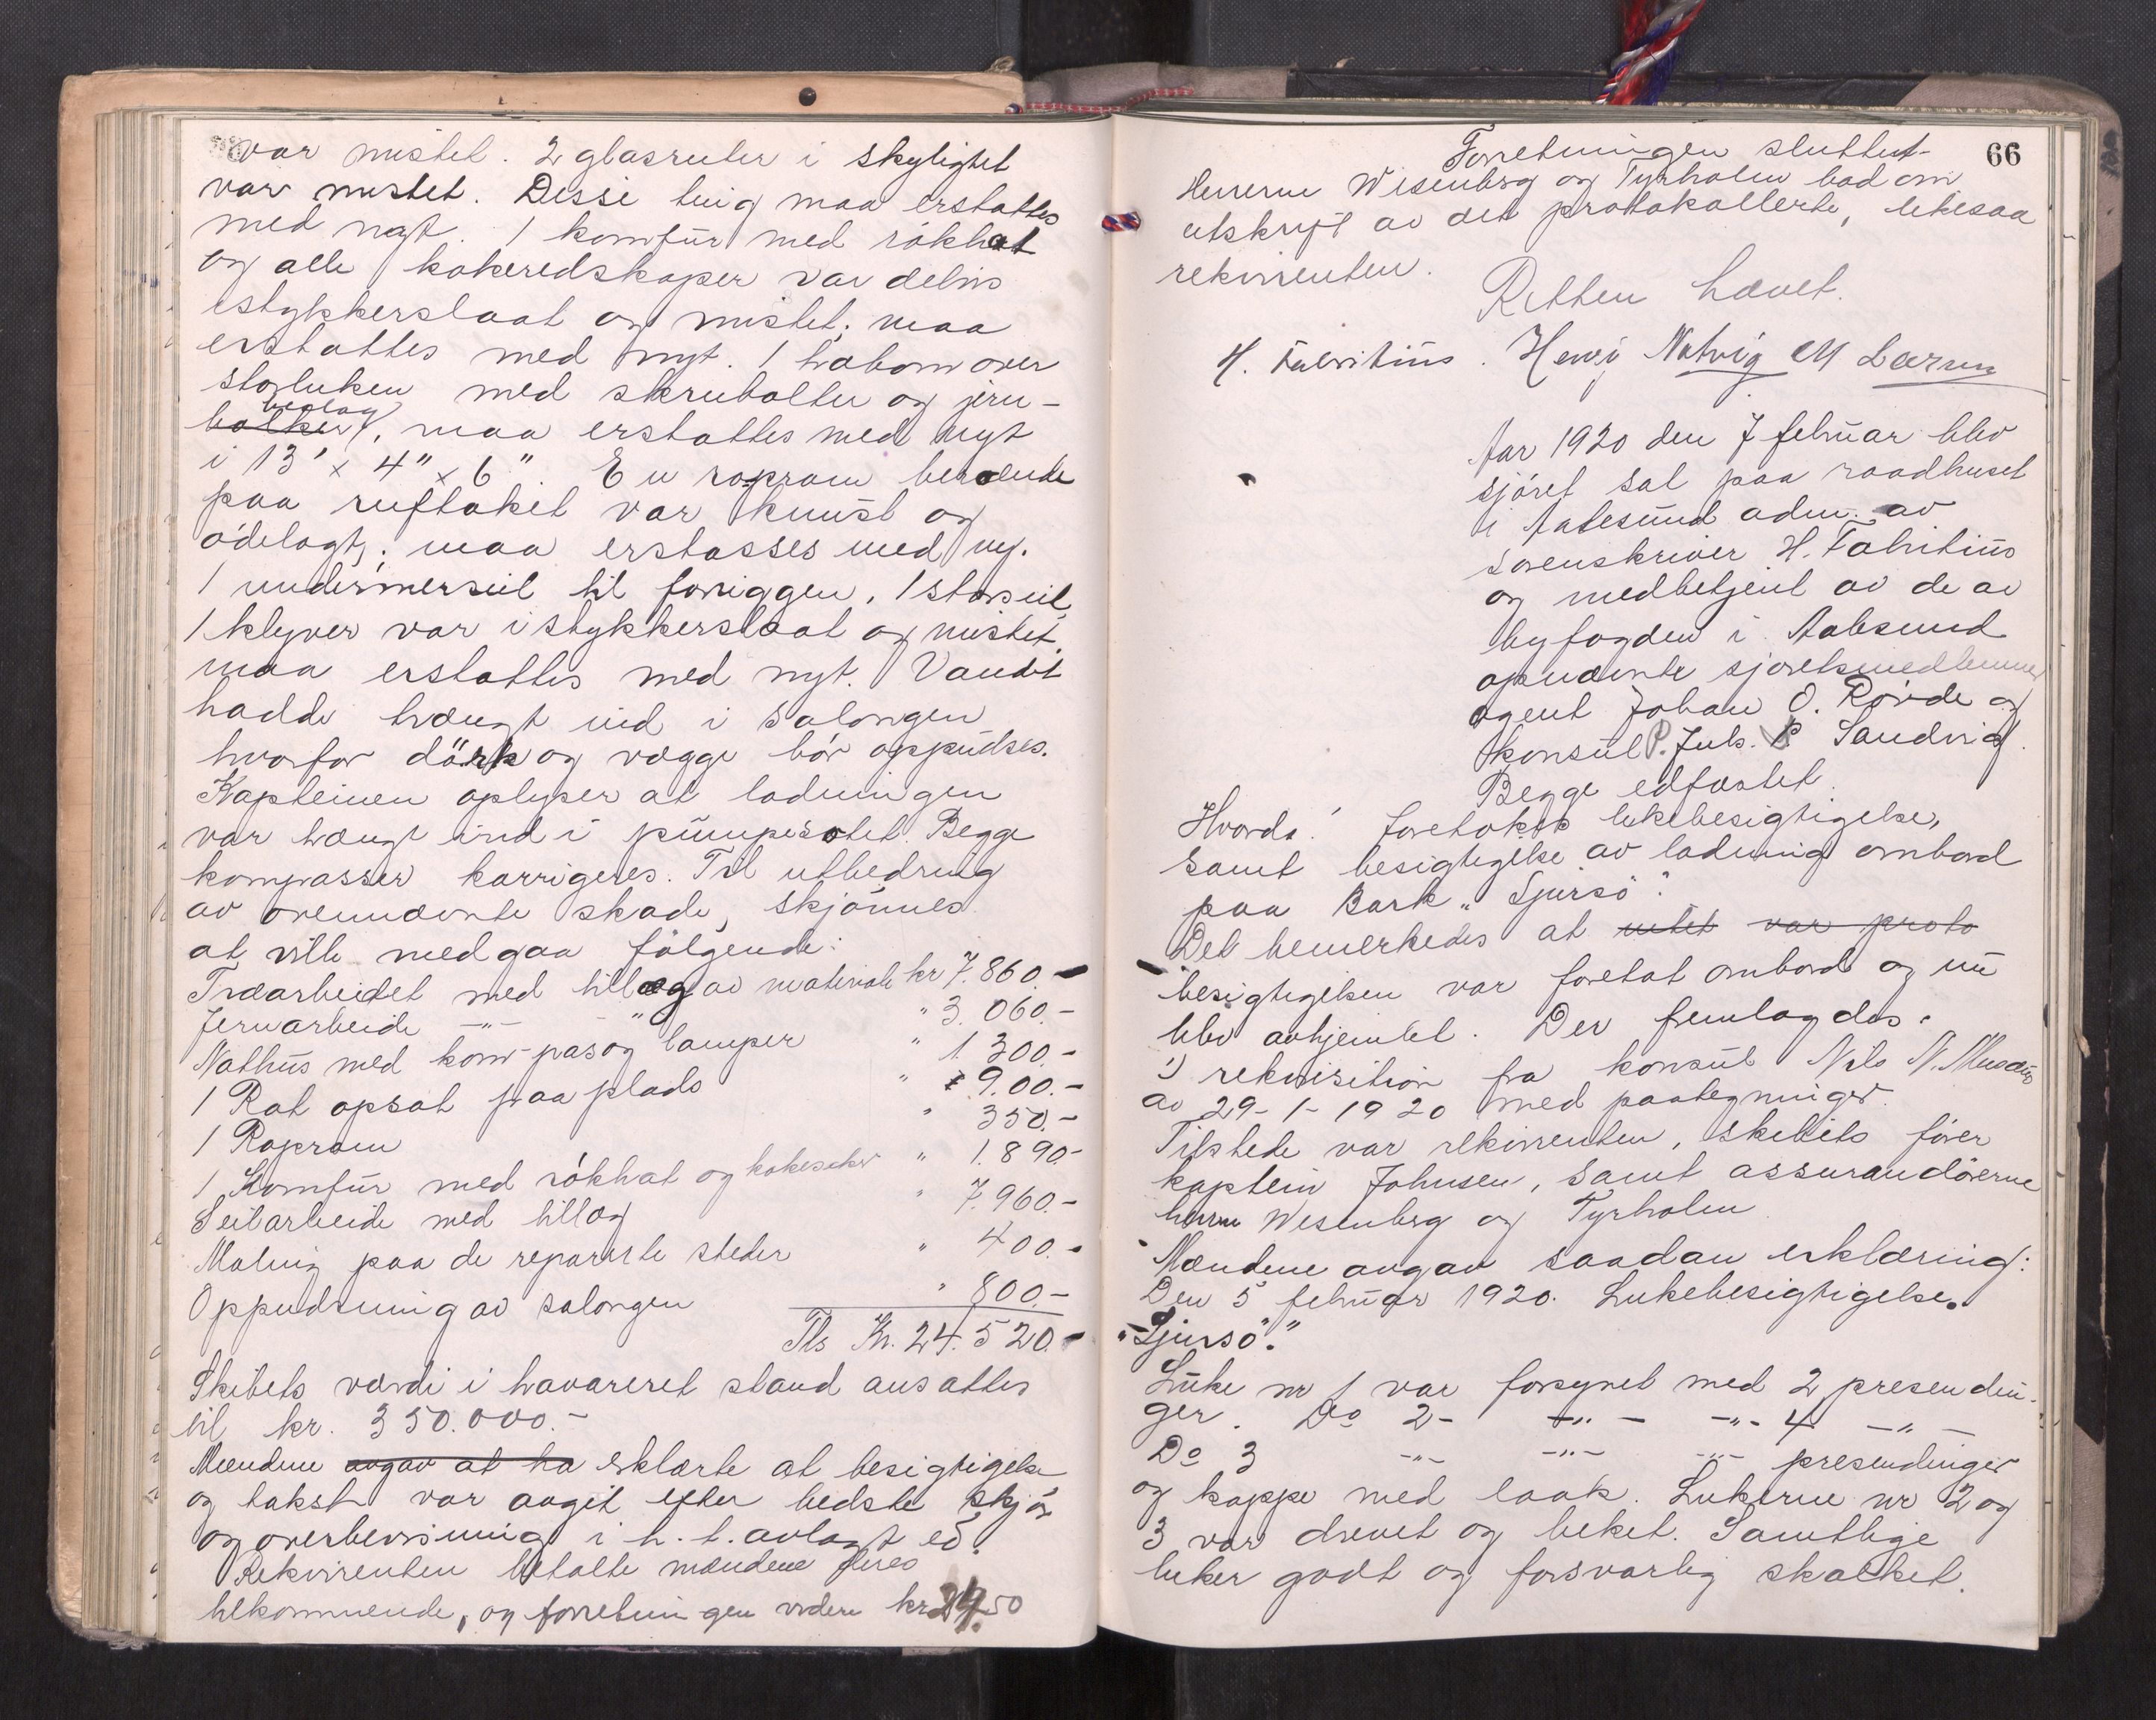 var mistet. 2 glasruter i skylightet
var mistet. Disse ting maa erstattes
med nyt. 1 komfür med rökhat
og alle kokeredskaper var delvis
istykkerslaat og mistet; maa
erstattes med nyt. 1 over
storluken med skrubolter og jern-
beslag
bolker, maa erstattes med nyt
i 13' x 4" x 6". En ropram beroende
paa ruftaket var knust og
ödelagt; maa erstasses med ny.
1 undermerseil til foriggen, 1 storseil,
1 klyver var istykkerslaat og mistet,
maa erstattes med nyt. Vandet
hadde trængt ind i salongen
hvorfor dörk og vægge bör oppudses.
Kapteinen oplyser at ladningen
var trængt ind i pumpesotet. Begge
kompasser korrigeres. Til utbedring
av ovennævnte skade, skjönnes
at ville medgaa fölgende:
Træarbeidet med tillæg av materiale kr 7.860.-
Jernarbeide -"- " " 3.060.-
Nathus med kompas og lamper " 1.300.-
1 Rat opsat paa plads " 900.-
1 Ropram " 350.-
1 Komfür med rökhat og " 1.890.-
Seilarbeide med tillæg " 7.960.-
Maling paa de reparerte steder " 400.-
Oppudsning av salongen " 800.-
Tls Kr. 24.520.-
Skibets værdi i havareret stand ansattes
til kr. 350.000.-
Mændene avgav at ha erklærte at besigtigelse
og takst var avgit efter bedste skjön
og overbevisning i h. t. avlagt ed.
Rekvirenten betalte mændene deres
tilkommende, og forretningen videre kr 24.50
66
Forretningen sluttet.
Herrerne Wisenberg og Tyrholm bad om
utskrift av det protokollerte, likesaa
rekvirenten.
Retten hævet.
H. Fabritius. Henry Natvig M Lærum
Aar 1920 den 7 februar blev
sjöret sat paa raadhuset
i Aalesund adm. av
sorenskriver H. Fabritius
og medbetjent av de av
byfogden i Aalesund
opnævnte sjöretsmedlemmer
agent Johan O. Rövde og
konsul P. Juls. P Sandvig.
Begge edfæstet.
Hvorda! foretokes lukebesigtigelse,
samt besigtigelse av ladning ombord
paa Bark "Sjursö".
Det bemerkedes at var proto
besigtigelsen var foretat ombord og nu
blev avhjemlet. Der fremlagdes:
1) rekvisition fra konsul Nils N.
av 29-1-1920 med paategninger.
Tilstede var rekvirenten, skibets förer
kaptein Johnsen, samt assurandörerne
herrer Wesenberg og Tyrholm.
Mændene avgav saadan erklæring:
Den 5 februar 1920. Lukebesigtigelse.
"Sjursö".
Luke nr 1 var forsynet med 2 presendin-
ger. Do 2 - -"- -"- 4 -"-
Do 3 -"- -"- -"- presendinger
og kappe med laak. Lukerne nr 2 og
3 var drevet og beket. Samtlige
luker godt og forsvarlig skalket.